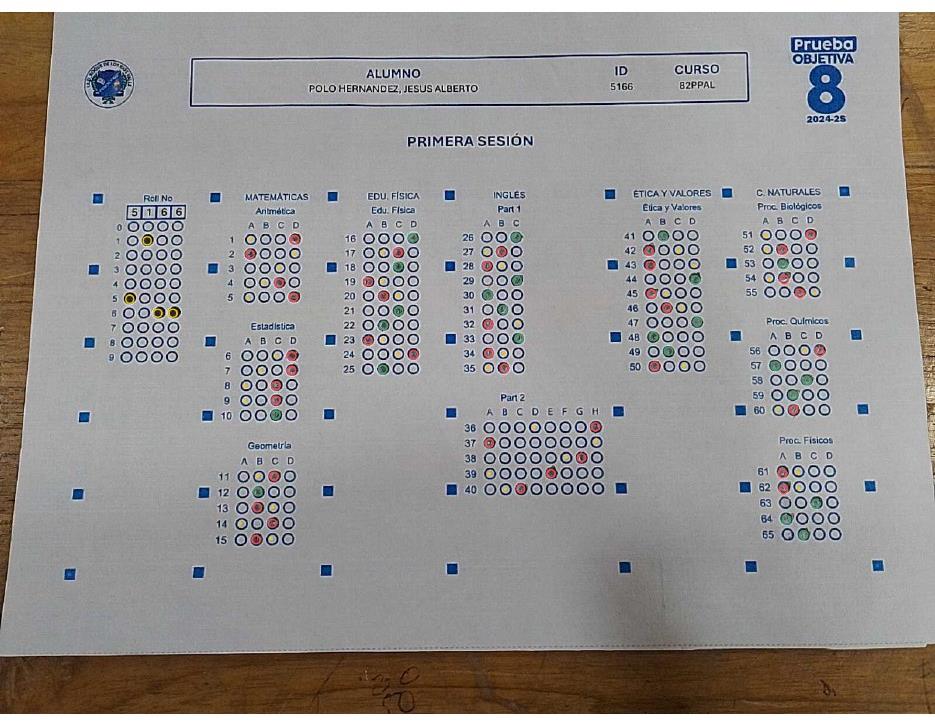 Prueba
OBJETIVA
8
2024-2S
ALUMNO ID CURSO
POLO HERNANDEZ, JESUS ALBERTO 5166 82PPAL
PRIMERA SESIÓN
Roll No
5 1 6 6
0
1
2
3
4
5
6
7
8
9
MATEMÁTICAS
Aritmética
A B C D
1
2
3
4
5
Estadística
A B C D
6
7
8
9
10
Geometría
A B C D
11
12
13
14
15
EDU. FÍSICA
Edu. Física
A B C D
16
17
18
19
20
21
22
23
24
25
INGLÉS
Part 1
A B C
26
27
28
29
30
31
32
33
34
35
Part 2
A B C D E F G H
36
37
38
39
40
ÉTICA Y VALORES
Ética y Valores
A B C D
41
42
43
44
45
46
47
48
49
50
C. NATURALES
Proc. Biológicos
A B C D
51
52
53
54
55
Proc. Químicos
A B C D
56
57
58
59
60
Proc. Físicos
A B C D
61
62
63
64
65